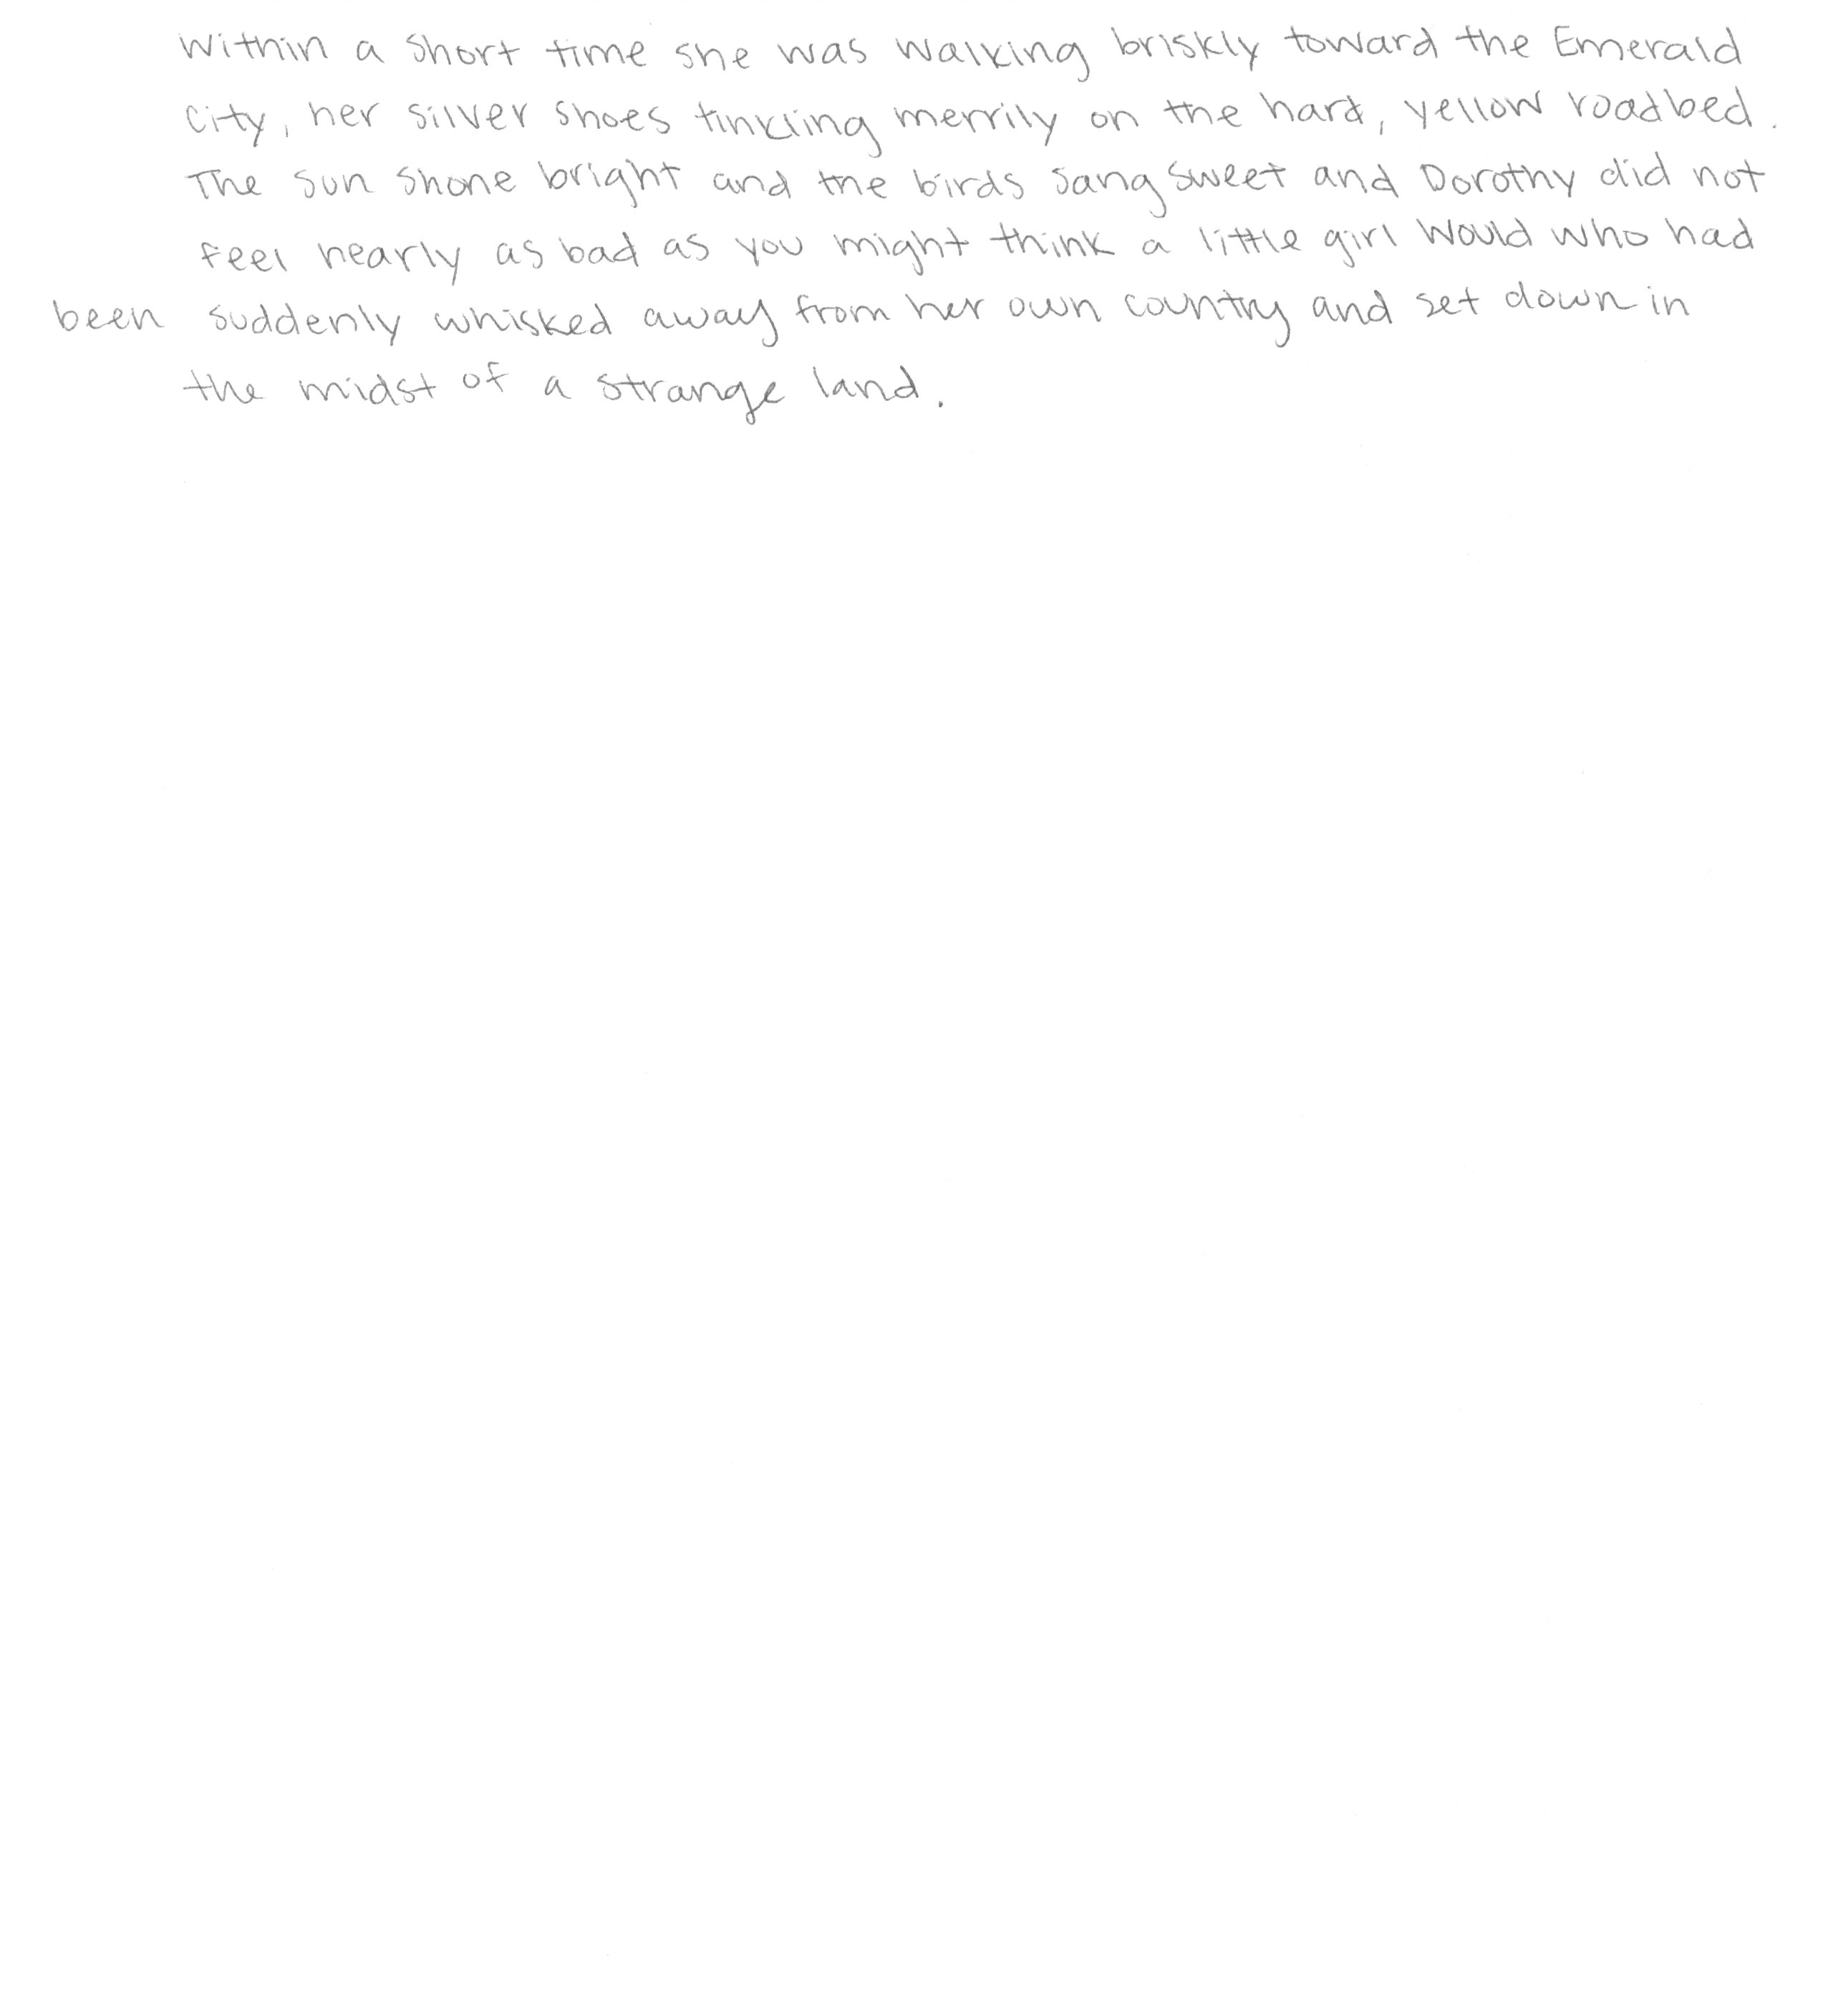 Within a short time she was walking briskly toward the Emerald
City, her silver shoes tinkling merrily on the hard, yellow roadbed.
The sun shone bright and the birds sang sweet and Dorothy did not
feel nearly as bad as you might think a little girl would who had
been suddenly whisked away from her own country and set down in
the midst of a strange land.